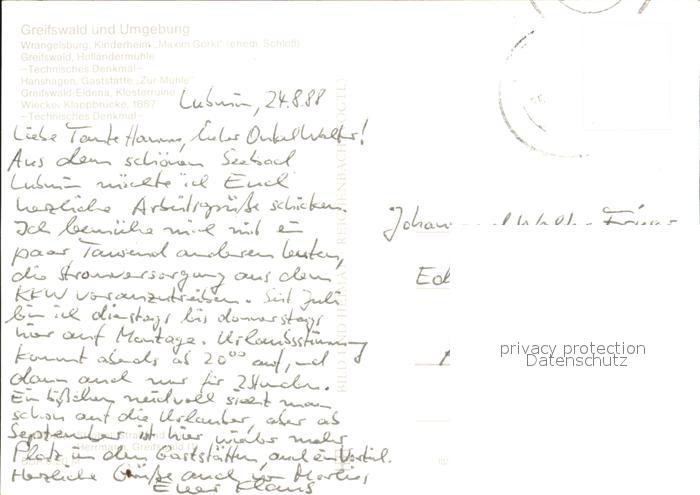 Greifswald und Umgebung
Wrangelsburg, Kinderheim „Maxim Gorki" (ehem. Schloß)
Greifswald, Holländermühle
–Technisches Denkmal–
Hanshagen, Gaststätte „Zur Mühle"
Greifswald-Eldena, Klosterruine
Wiecke, Klappbrücke, 1887
–Technisches Denkmal–
Lubmin, 24.8.88
Liebe Tante Hanna, lieber Onkel Walter!
Aus dem schönen Seebad
Lubmin möchte ich Euch
herzliche Arbeitsgrüße schicken.
Ich bemühe mich mit ein
paar Tausend anderen Leuten,
die Stromversorgung aus dem
KKW voranzutreiben. Seit Juli
bin ich dienstags bis donnerstags
hier auf Montage. Urlaubsstimmung
kommt abends ab 20⁰⁰ auf, und
dann auch nur für 2 Stunden.
Ein bißchen neidvoll sieht man
schon auf die Urlauber, aber ab
September ist hier wieder mehr
Platz in den Gaststätten, auch ein Vorteil.
Herzliche Grüße auch von
Euer Klaus
BILD UND HEIMAT REICHENBACH (VOGTL)
Walter
privacy protection
Datenschutz